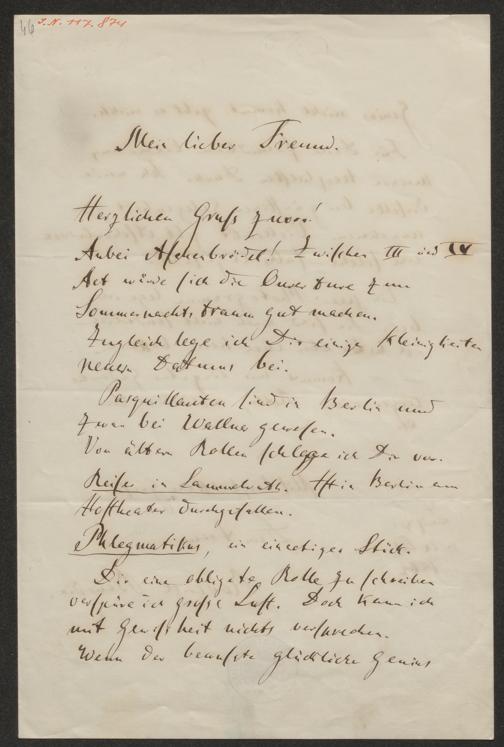 46
I.N. 117.874
Mein lieber Freund.
Herzlichen Gruß zuvor!
Anbei Aschenbrödel! Zwischen III und IV
Act würde sich die Ouverture zum
Sommernachtstraum gut machen.
Zugleich lege ich Dir einige Kleinigkeiten
neuern Datums bei.
Pasquillanten sind in Berlin und
zwar bei Wallner gewesen.
Von ältern Rollen schlage ich Dir vor.
Reise in Ist in Berlin am
Hoftheater durchgefallen.
Phlegmatikus, ein einactiges Stück.
Dir eine obligate Rolle zu schreiben
verspüre ich große Lust. Doch kann ich
mit Gewißheit nichts versprechen.
Wenn der bewußte glückliche Genius